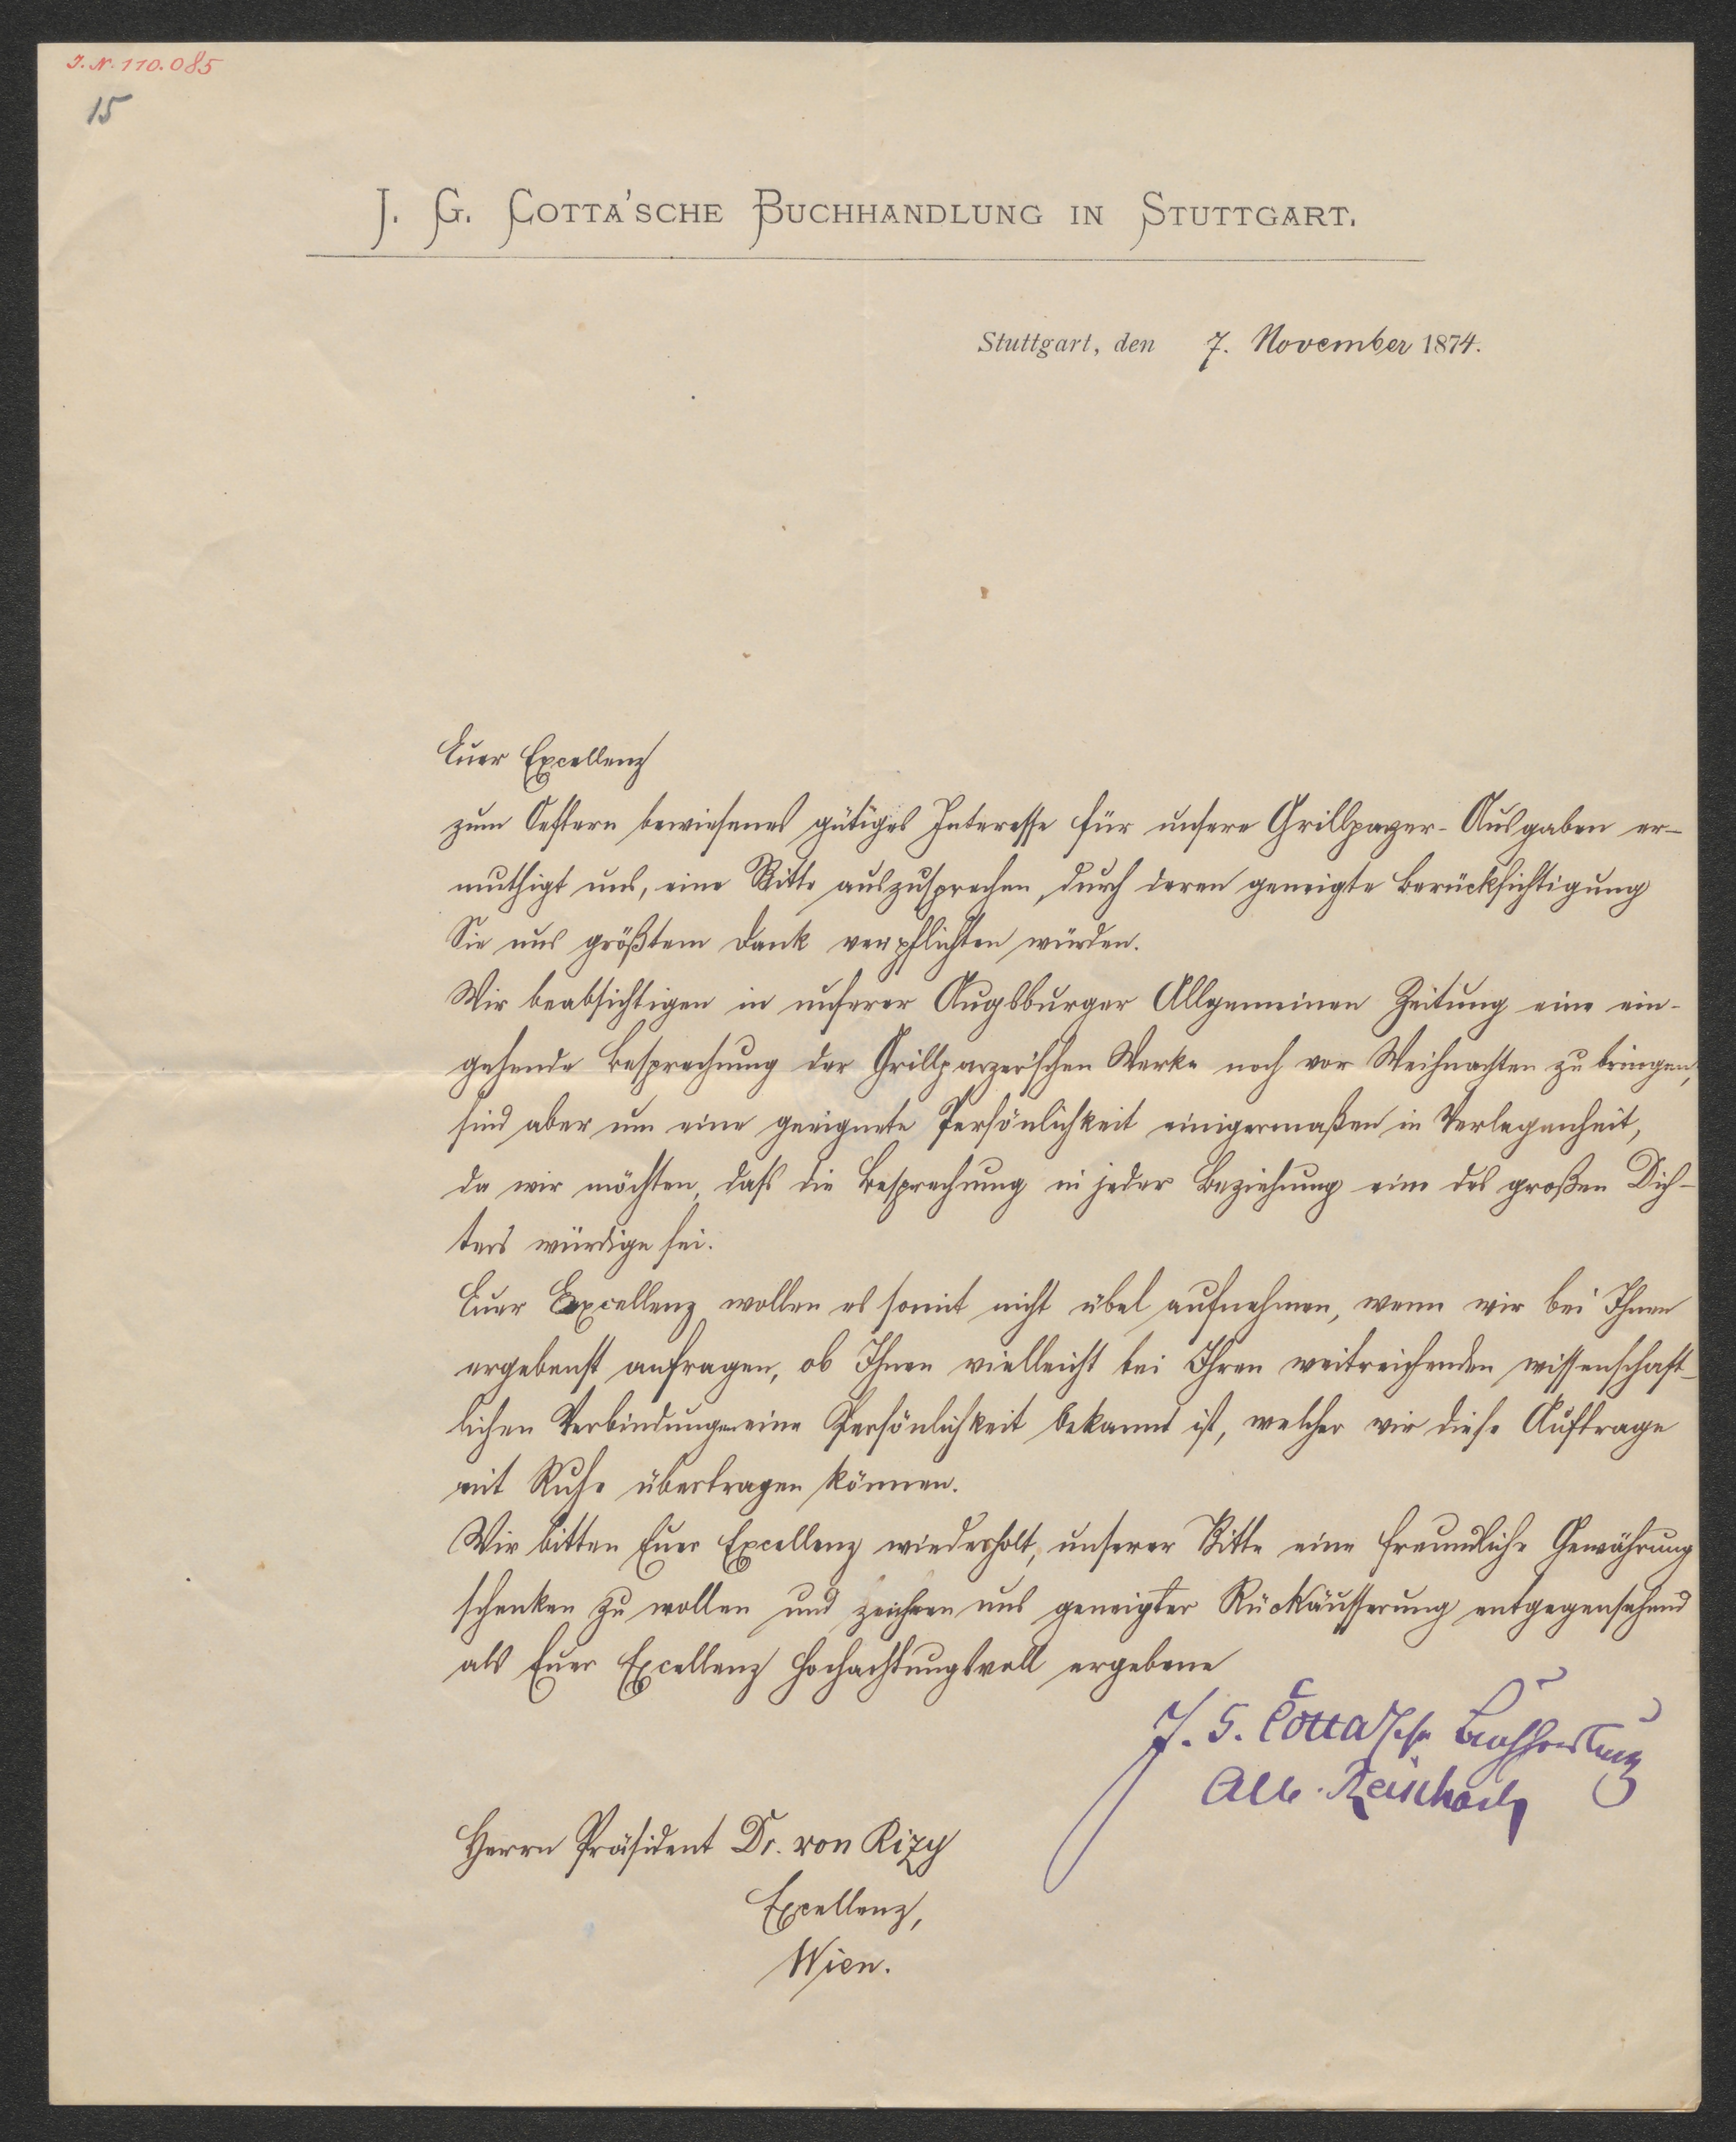 J. N. 110.085
15
J. G. COTTA'SCHE BUCHHANDLUNG IN STUTTGART.
Stuttgart, den 7. November 1874.
Euer Excellenz
zum Oeftern bewiesenes gütiges Interesse für unsere Grillparzer-Ausgaben er-
muthigt uns, eine Bitte auszusprechen, durch deren geneigte Berücksichtigung
Sie uns größtem Dank verpflichten würden.
Wir beabsichtigen in unserer Augsburger Allgemeinen Zeitung eine ein-
gehende Besprechung der Grillparzer'schen Werke noch vor Weihnachten zu bringen,
sind aber um eine geeignete Persönlichkeit einigermaßen in Verlegenheit,
da wir möchten, daß die Besprechung in jeder Beziehung eine des großen Dich-
ters würdige sei.
Euer Excellenz wollen es somit nicht übel aufnehmen, wenn wir bei Ihnen
ergebenst anfragen, ob Ihnen vielleicht bei Ihren weitreichenden wissenschaft-
lichen Verbindungen eine Persönlichkeit bekannt ist, welcher wir diese Auftrage
mit Ruhe übertragen können.
Wir bitten Euer Excellenz wiederholt, unserer Bitte eine freundliche Gewährung
schenken zu wollen und zeichnen uns geneigter Rückäusserung entgegensehend
als Euer Excellenz hochachtungsvoll ergebene
J. G. Cotta'sche Buchhandlung
Herrn Präsident Dr. von Rizy
Excellenz,
Wien.